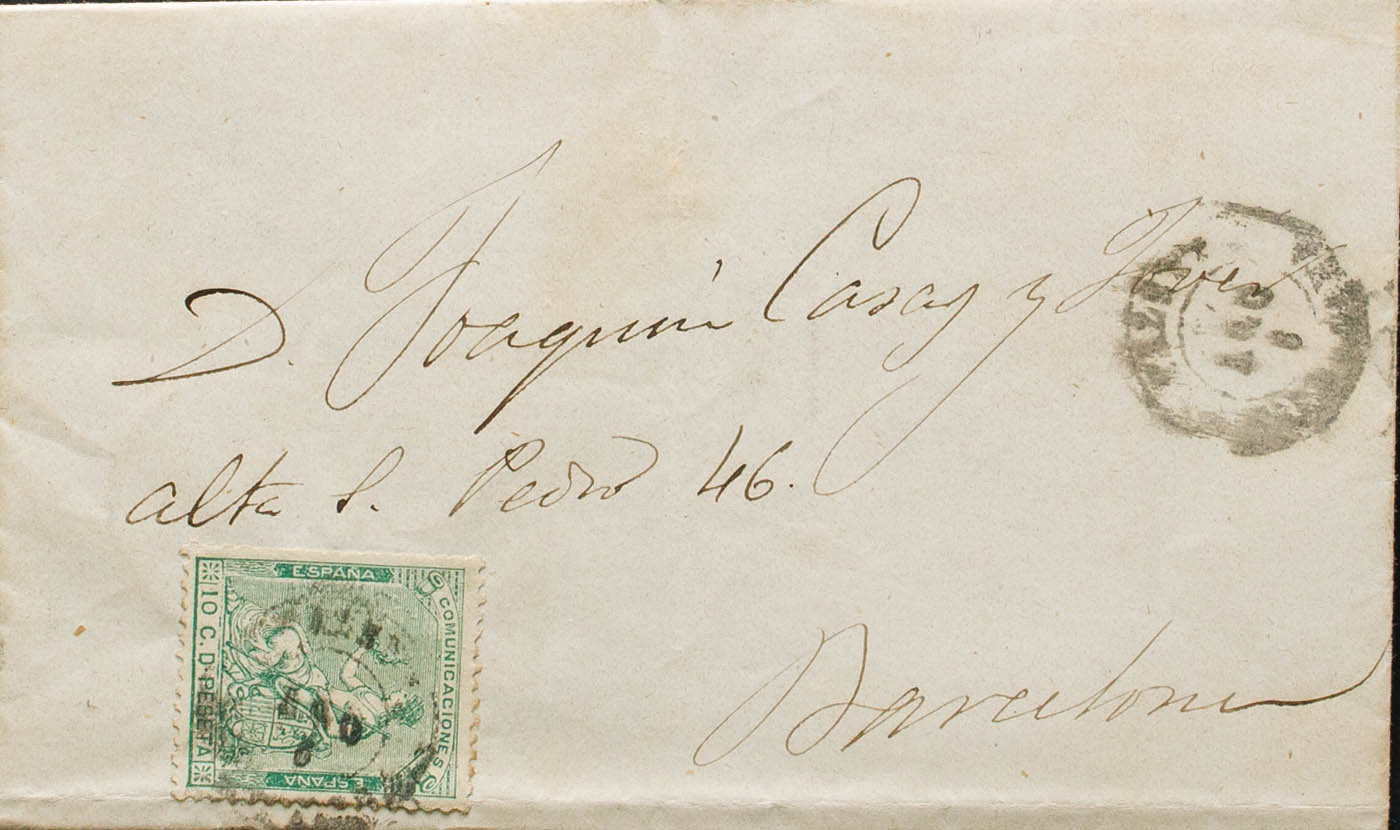 D. Joaquin Casas y
alta S. Pedro 46.
Barcelona
ESPAÑA
COMUNICACIONES
10 C. D PESETA
ESPAÑA
AGO